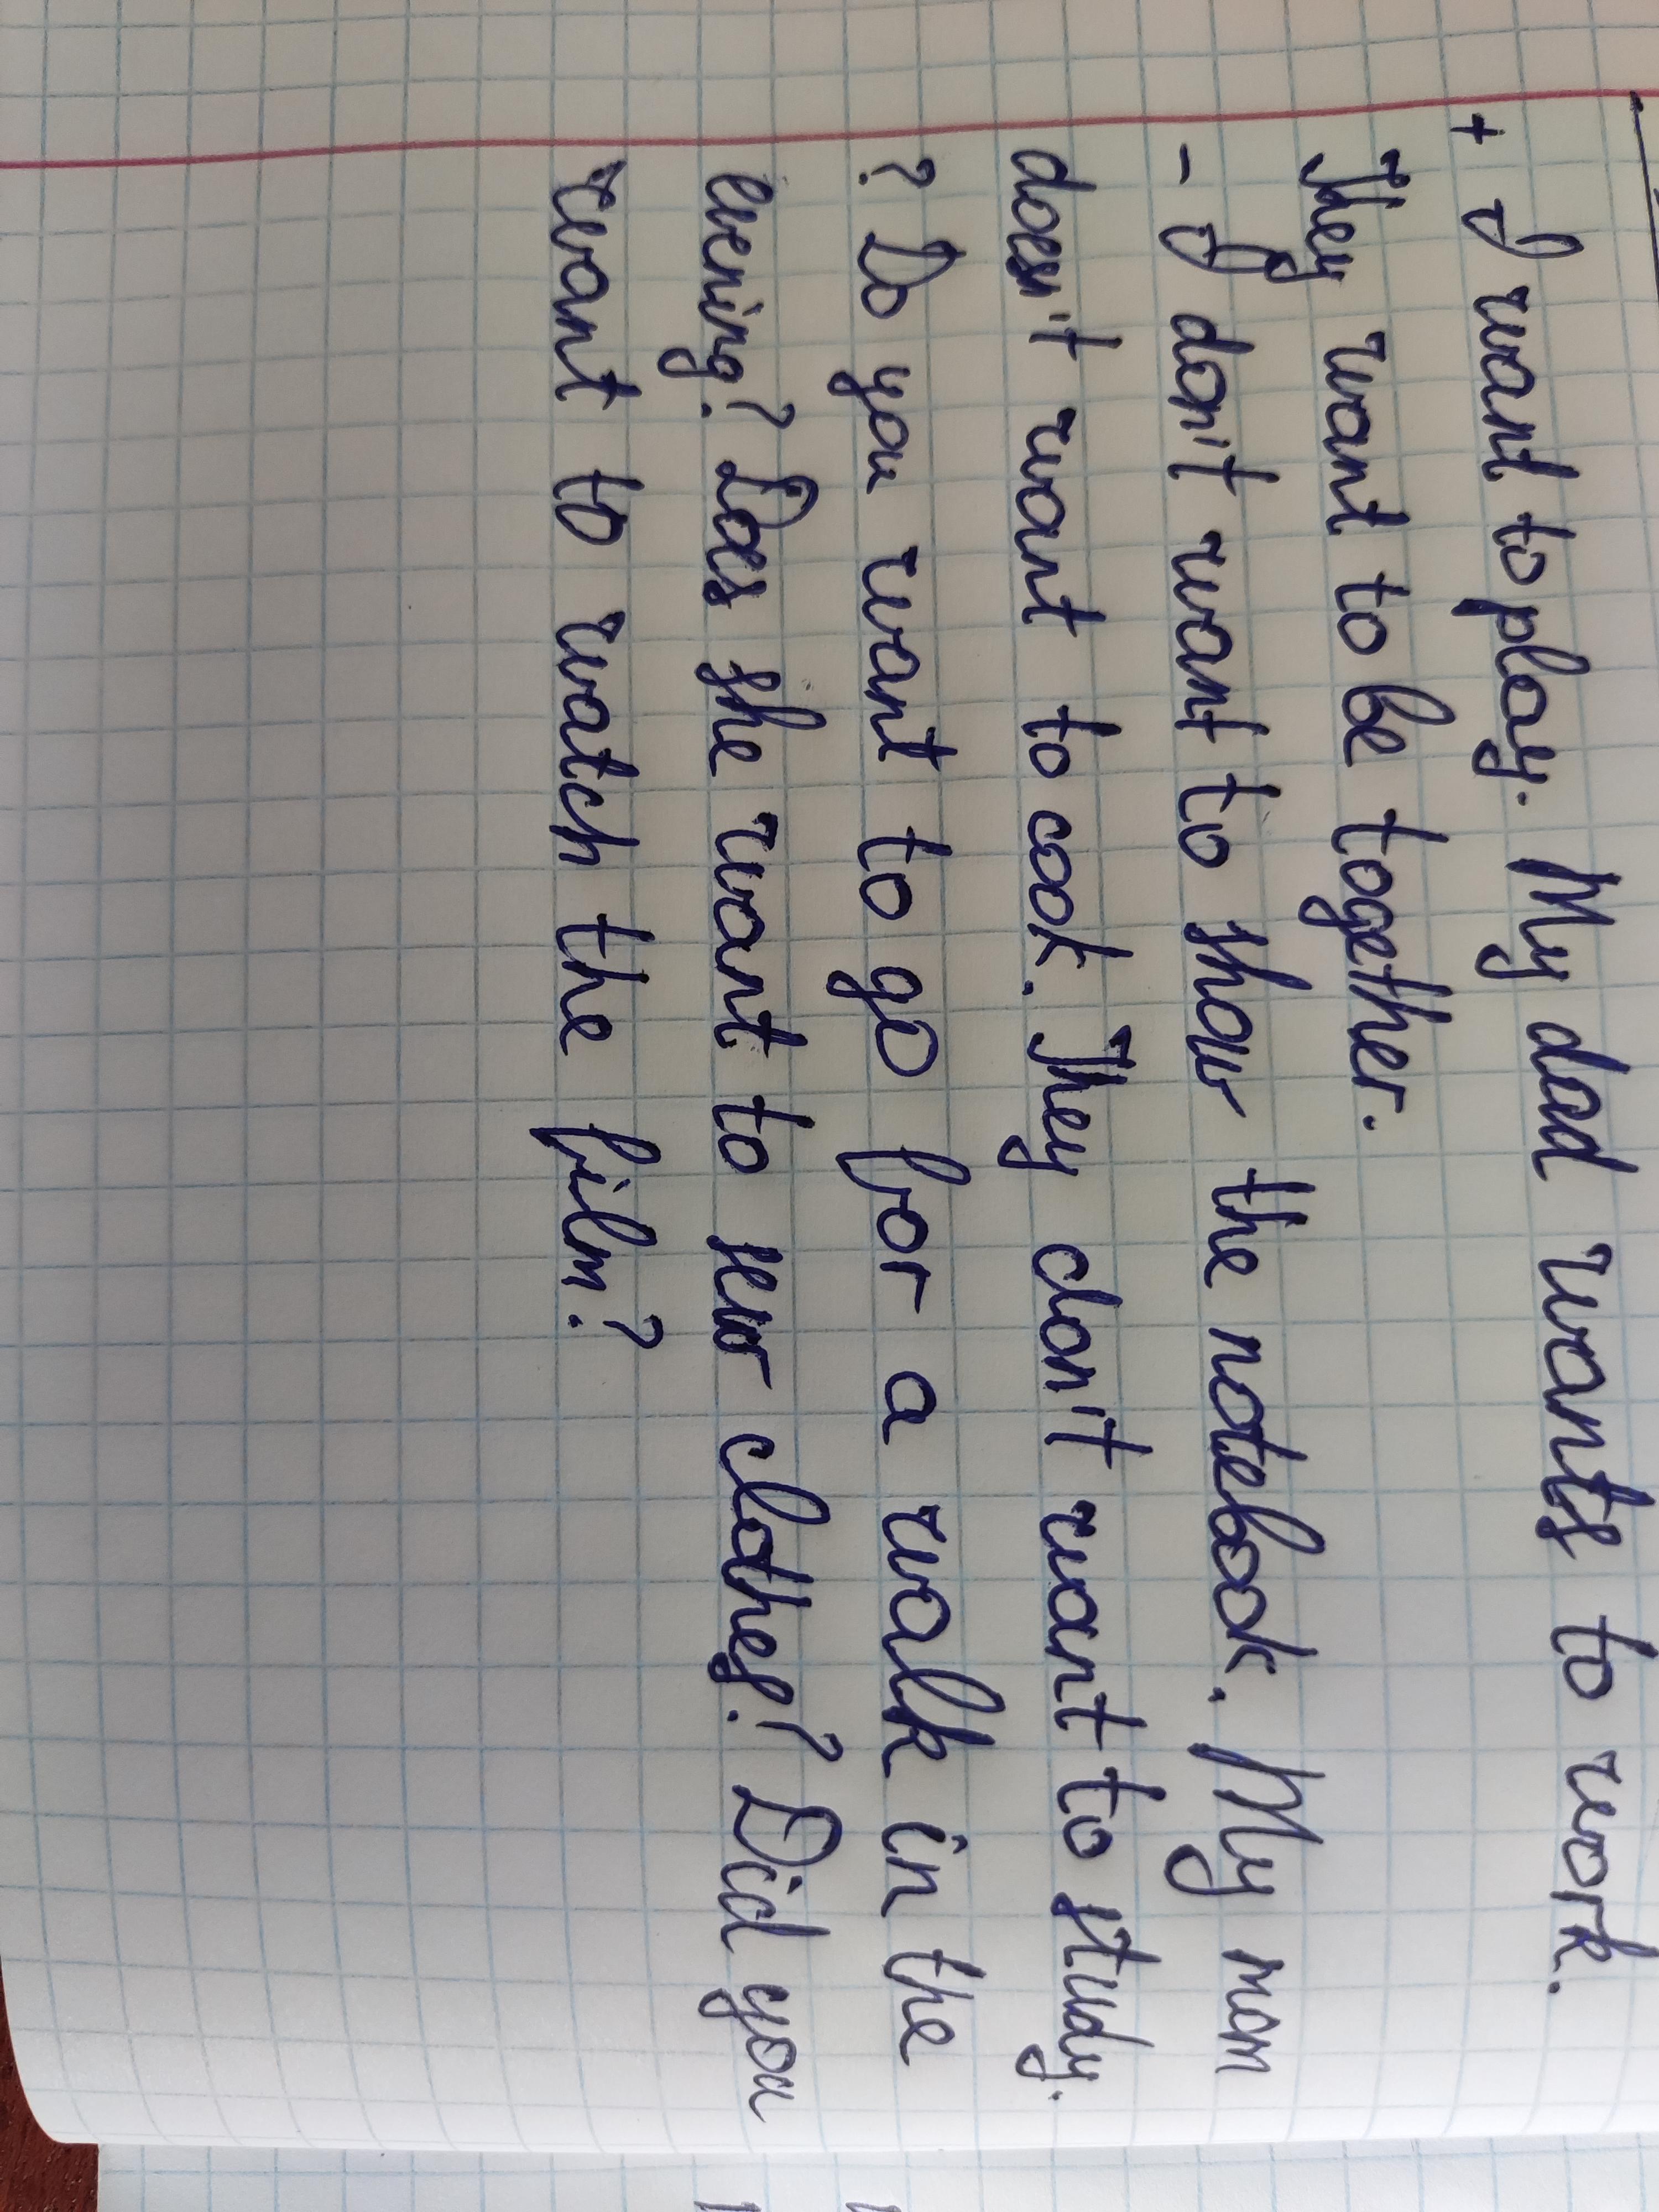 + I want to play. My dad wants to work.
They want to be together.
- I don't want to show the notebook. My mom
doesn't want to cook. They don't want to study.
? Do you want to go for a walk in the
evening? Does she want to sew clothes? Did you
want to watch the film?